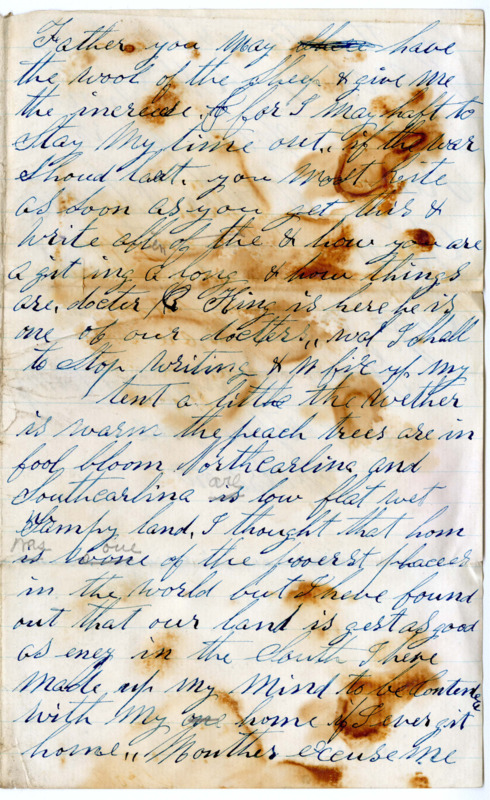 Father you may have
the wool of the sheep & give me
the increase. for I may haft to
stay my time out,, if the war
Shoud last. you must write
as soon as you get this &
write often & how you are
a git ing a long & how things
are. docter King is here he is
one of our docters,, wal I shall
to stop writing & fix up my
tent a little the wether
is warm the peach trees are in
fool bloom Northcarlina and
Southcarlina is are low flat wet
Swampy land, I thought that hom
was one of the poorest places
in the world but I have found
out that our land is gest as good
as eney in the South I have
made up my mind to be Contented
with my one home if I ever git
home,, Mouther excuse me